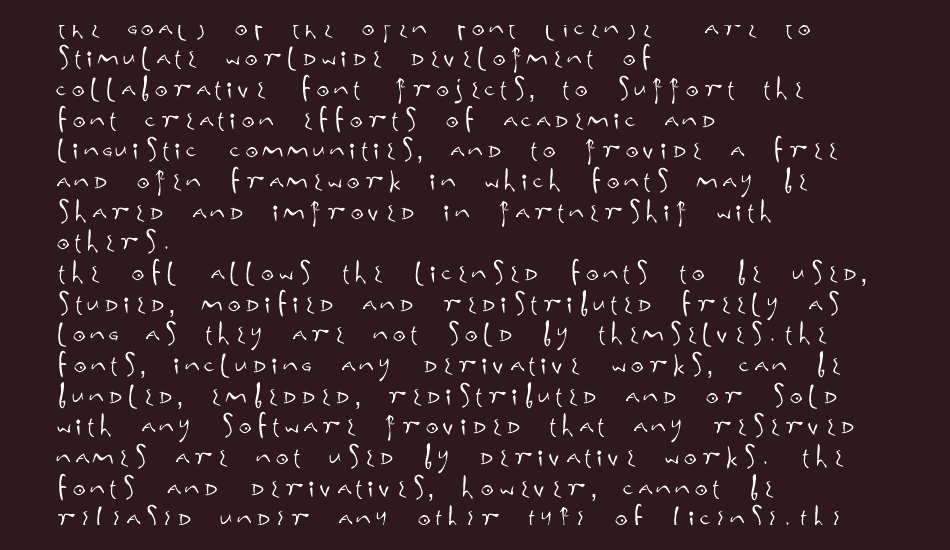 the goals of the open font license are to
stimulate worldwide development of
collaborative font projects, to support the
font creation efforts of academic and
linguistic communities, and to provide a free
and open framework in which fonts may be
shared and improved in partnership with
others.
the ofl allows the licensed fonts to be used,
studied, modified and redistributed freely as
long as they are not sold by themselves.the
fonts, including any derivative works, can be
bundled, embedded, redistributed and or sold
with any software provided that any reserved
names are not used by derivative works. the
fonts and derivatives, however, cannot be
released under any other type of license.the